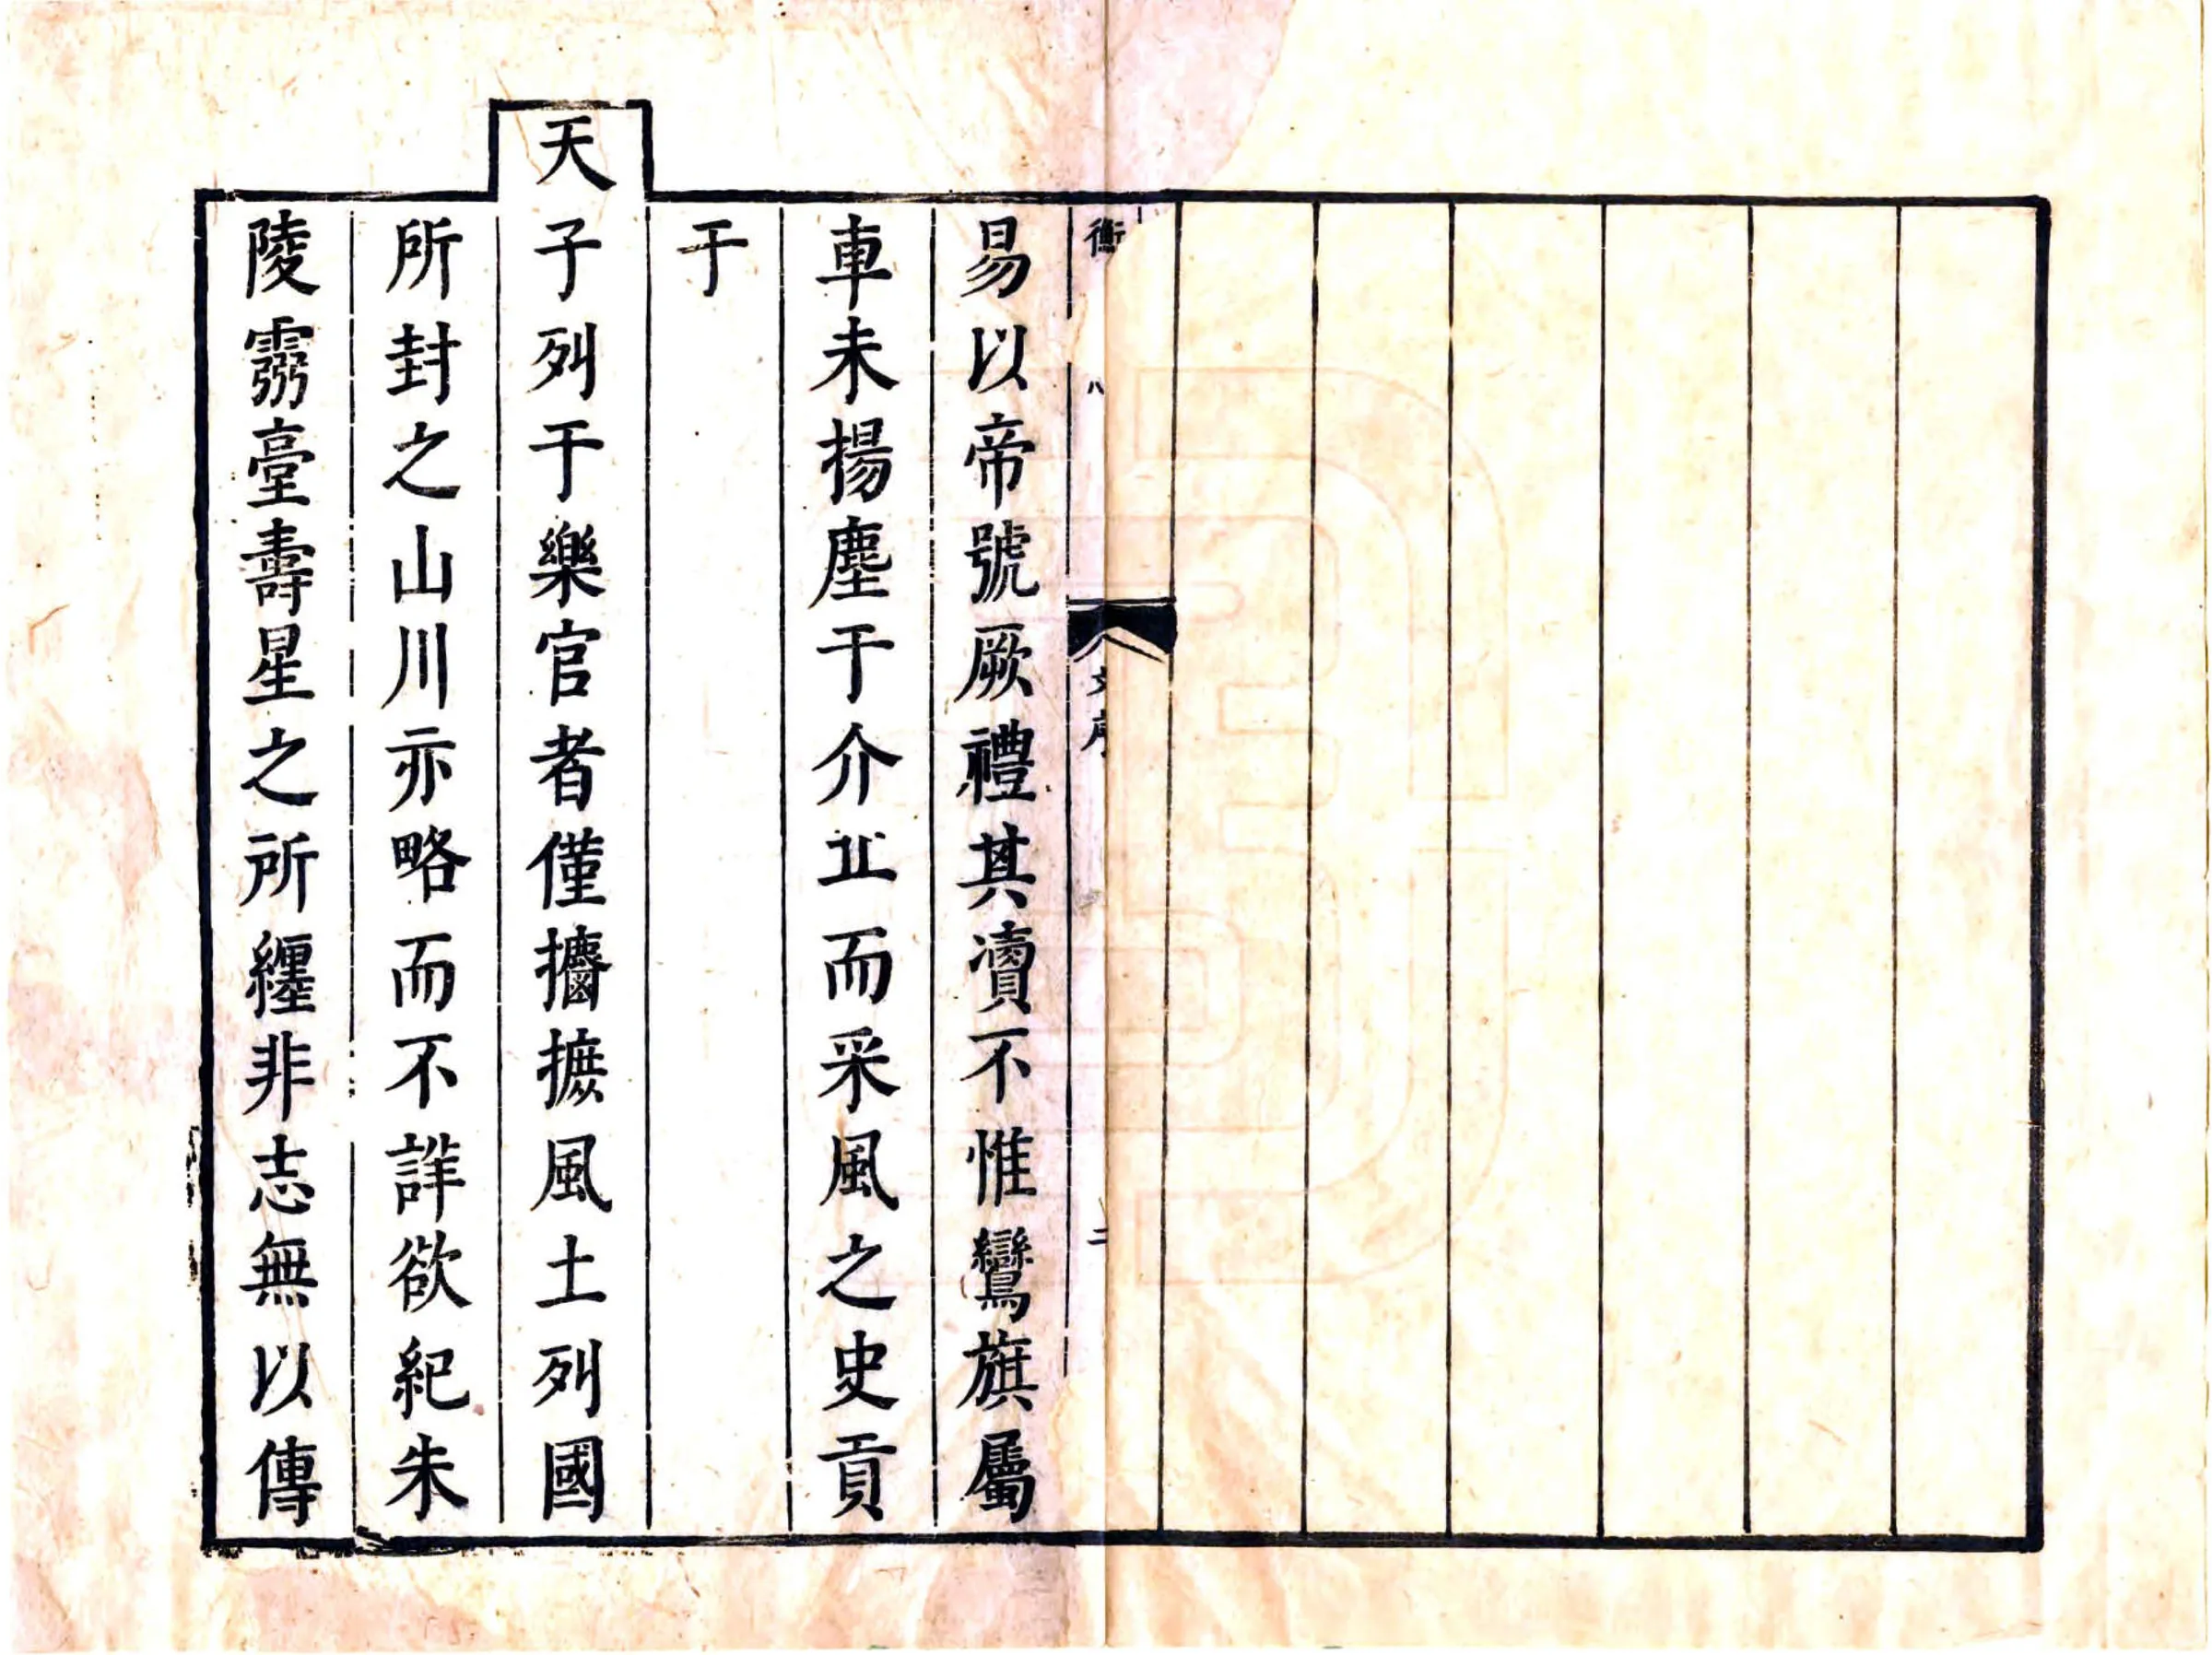 衡
文序
二
易以帝號厥禮其凟不惟鸞旗屬
車未揚塵于介㐀而采風之史貢
于
天子列于樂官者僅摭風土列國
所封之山川亦略而不詳欲紀朱
陵臺壽星之所纏非志無以傳